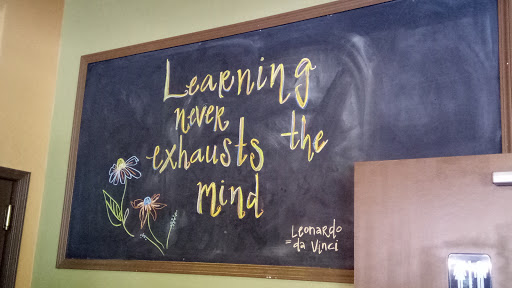 Learning
never
exhausts the
mind
Leonardo
= da Vinci